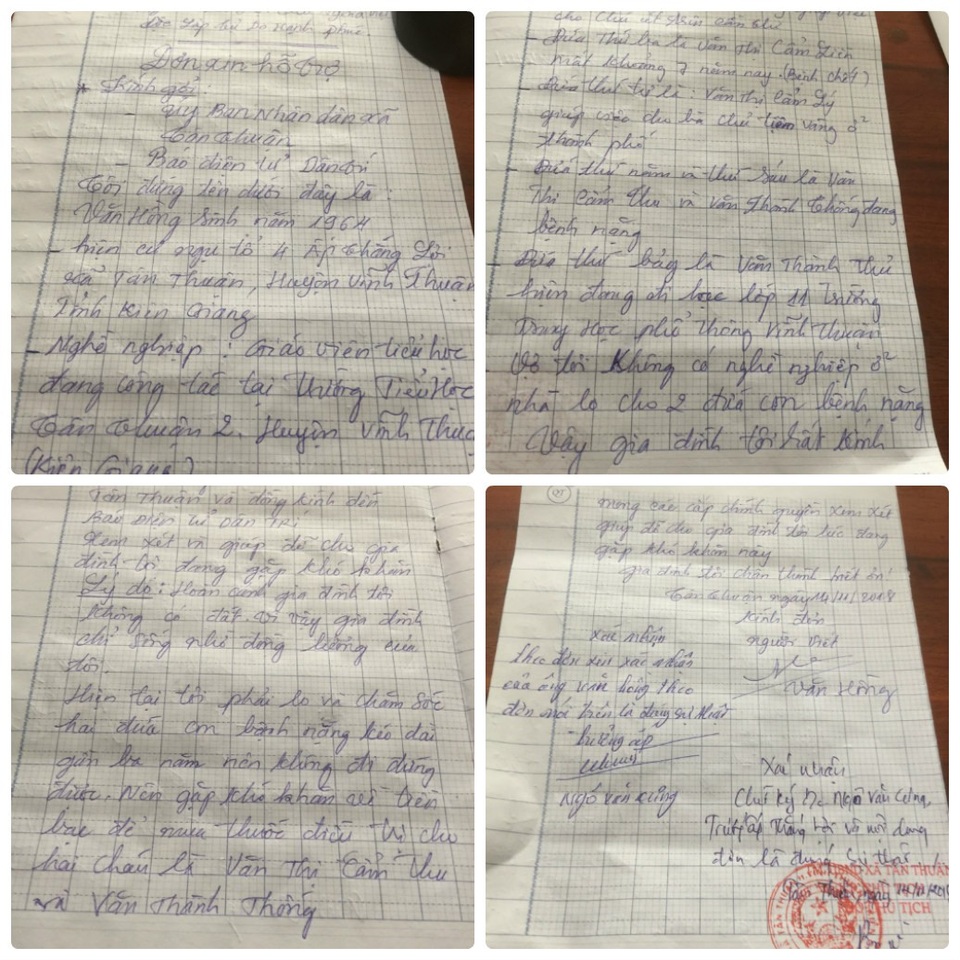 Độc lập tự do hạnh phúc
Đơn xin hỗ trợ
* Kính gởi:
- Ủy Ban Nhân dân xã
Tân Thuận
- Báo điện tử Dân trí
Tôi đứng tên dưới đây là:
Văn Hồng Sinh năm 1964
- hiện cư ngụ tổ 4 Ấp Thắng Lợi
xã Tân Thuận, Huyện Vĩnh Thuận
Tỉnh Kiên Giang
- Nghề nghiệp: Giáo viên tiểu học
đang công tác tại trường Tiểu Học
Tân Thuận 2. Huyện Vĩnh Thuậ
(Kiên Giang)
- Đứa Thứ ba là Văn Thị Cẩm Liên
mất khoảng 7 năm nay. (Bệnh chết)
- Đứa thứ tư là: Văn thị Cẩm Lý
giúp việc cho bà chủ tiệm vàng ở
thành phố
- Đứa thứ năm và thứ sáu là Văn
Thị Cẩm Thu và Văn Thành Thống đang
bệnh nặng
- Đứa thứ bảy là Văn Thành Thử
hiện đang đi học lớp 11 Trường
Trung Học phổ thông Vĩnh Thuận
Vợ tôi Không có nghề nghiệp ở
nhà lo cho 2 đứa con bệnh nặng
Vậy gia đình tôi rất kính
Tân Thuận và đồng kính đến
Báo Điện Tử DÂN TRÍ
Xem xét và giúp đỡ cho gia
đình tôi đang gặp khó khăn
Lý do: Hoàn cảnh gia đình tôi
không có đất. Vì vậy gia đình
chỉ sống nhờ đồng lương của
tôi.
Hiện tại tôi phải lo và chăm sóc
hai đứa con bệnh nặng kéo dài
gần ba năm nên không đi đứng
được. Nên gặp khó khăn về tiền
bạc để mua thuốc điều trị cho
hai cháu là Văn Thị Cẩm Thu
và Văn Thành Thống
mong các cấp chính quyền xem xét
giúp đỡ cho gia đình tôi lúc đang
gặp khó khăn này
gia đình tôi chân thành biết ơn!
Tân Thuận ngày 14/11/2018
Kính đơn
người viết
Văn Hồng
Xác nhận
theo đơn xin xác nhận
của ông Văn Hồng theo
đơn nói trên là đúng sự thật
Trưởng ấp
Ngô Văn Cưng
Xác nhận
Chữ ký Ngô Văn Cưng
Trưởng ấp Thắng Lợi và nội dung
đơn là đúng sự thật
Tân Thuận, ngày 14/11/2018
UBND XÃ TÂN THUẬN
CHỦ TỊCH